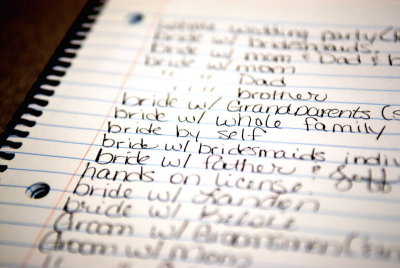 wedding party
bride w/ bridesmaids
bride w/ mom & Dad &
bride w/ mom
" " Dad
" " brother
bride w/ Grandparents (s
bride w/ whole family
bride by self
bride w/ bridesmaids indiv
bride w/ father &
hands on license
bride w/ Landen
bride w/
Groom w/
Groom w/ Mom